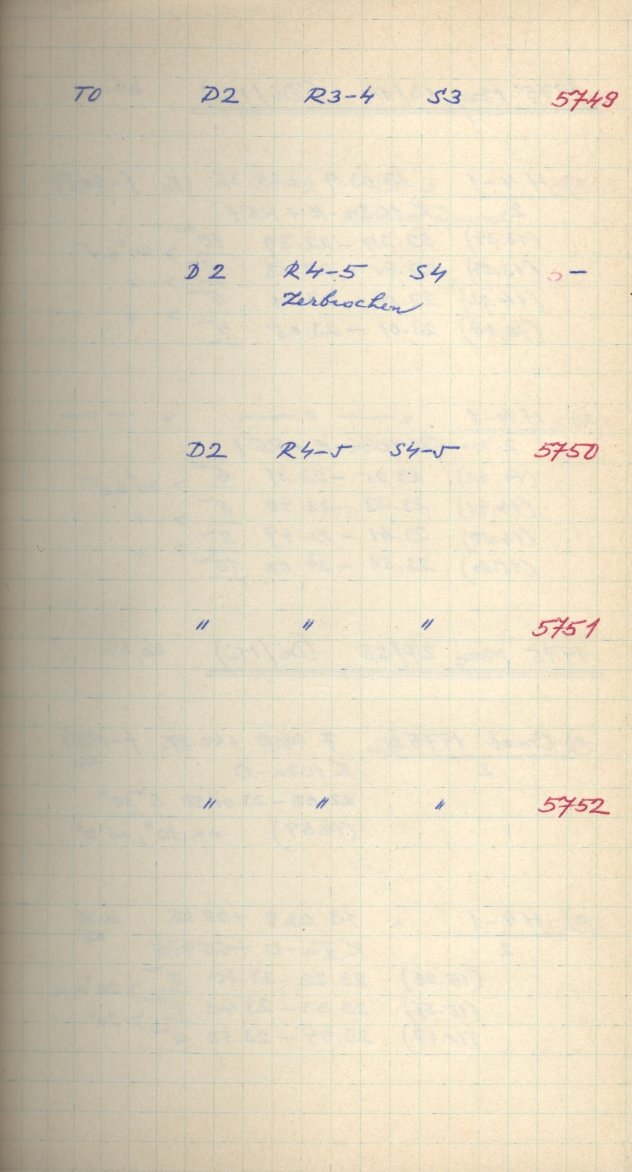 TO D2 R3-4 S3 5749
D2 R4-5 S4 —
Zerbrochen
D2 R4-5 S4-5 5750
" " " 5751
" " " 5752